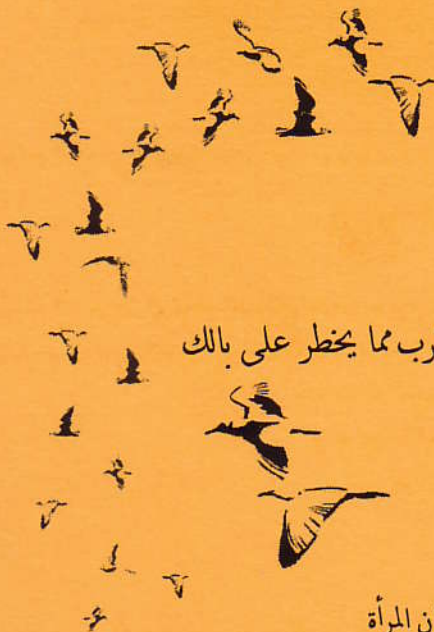 رب مما يخطر على بالك
ن المرأة